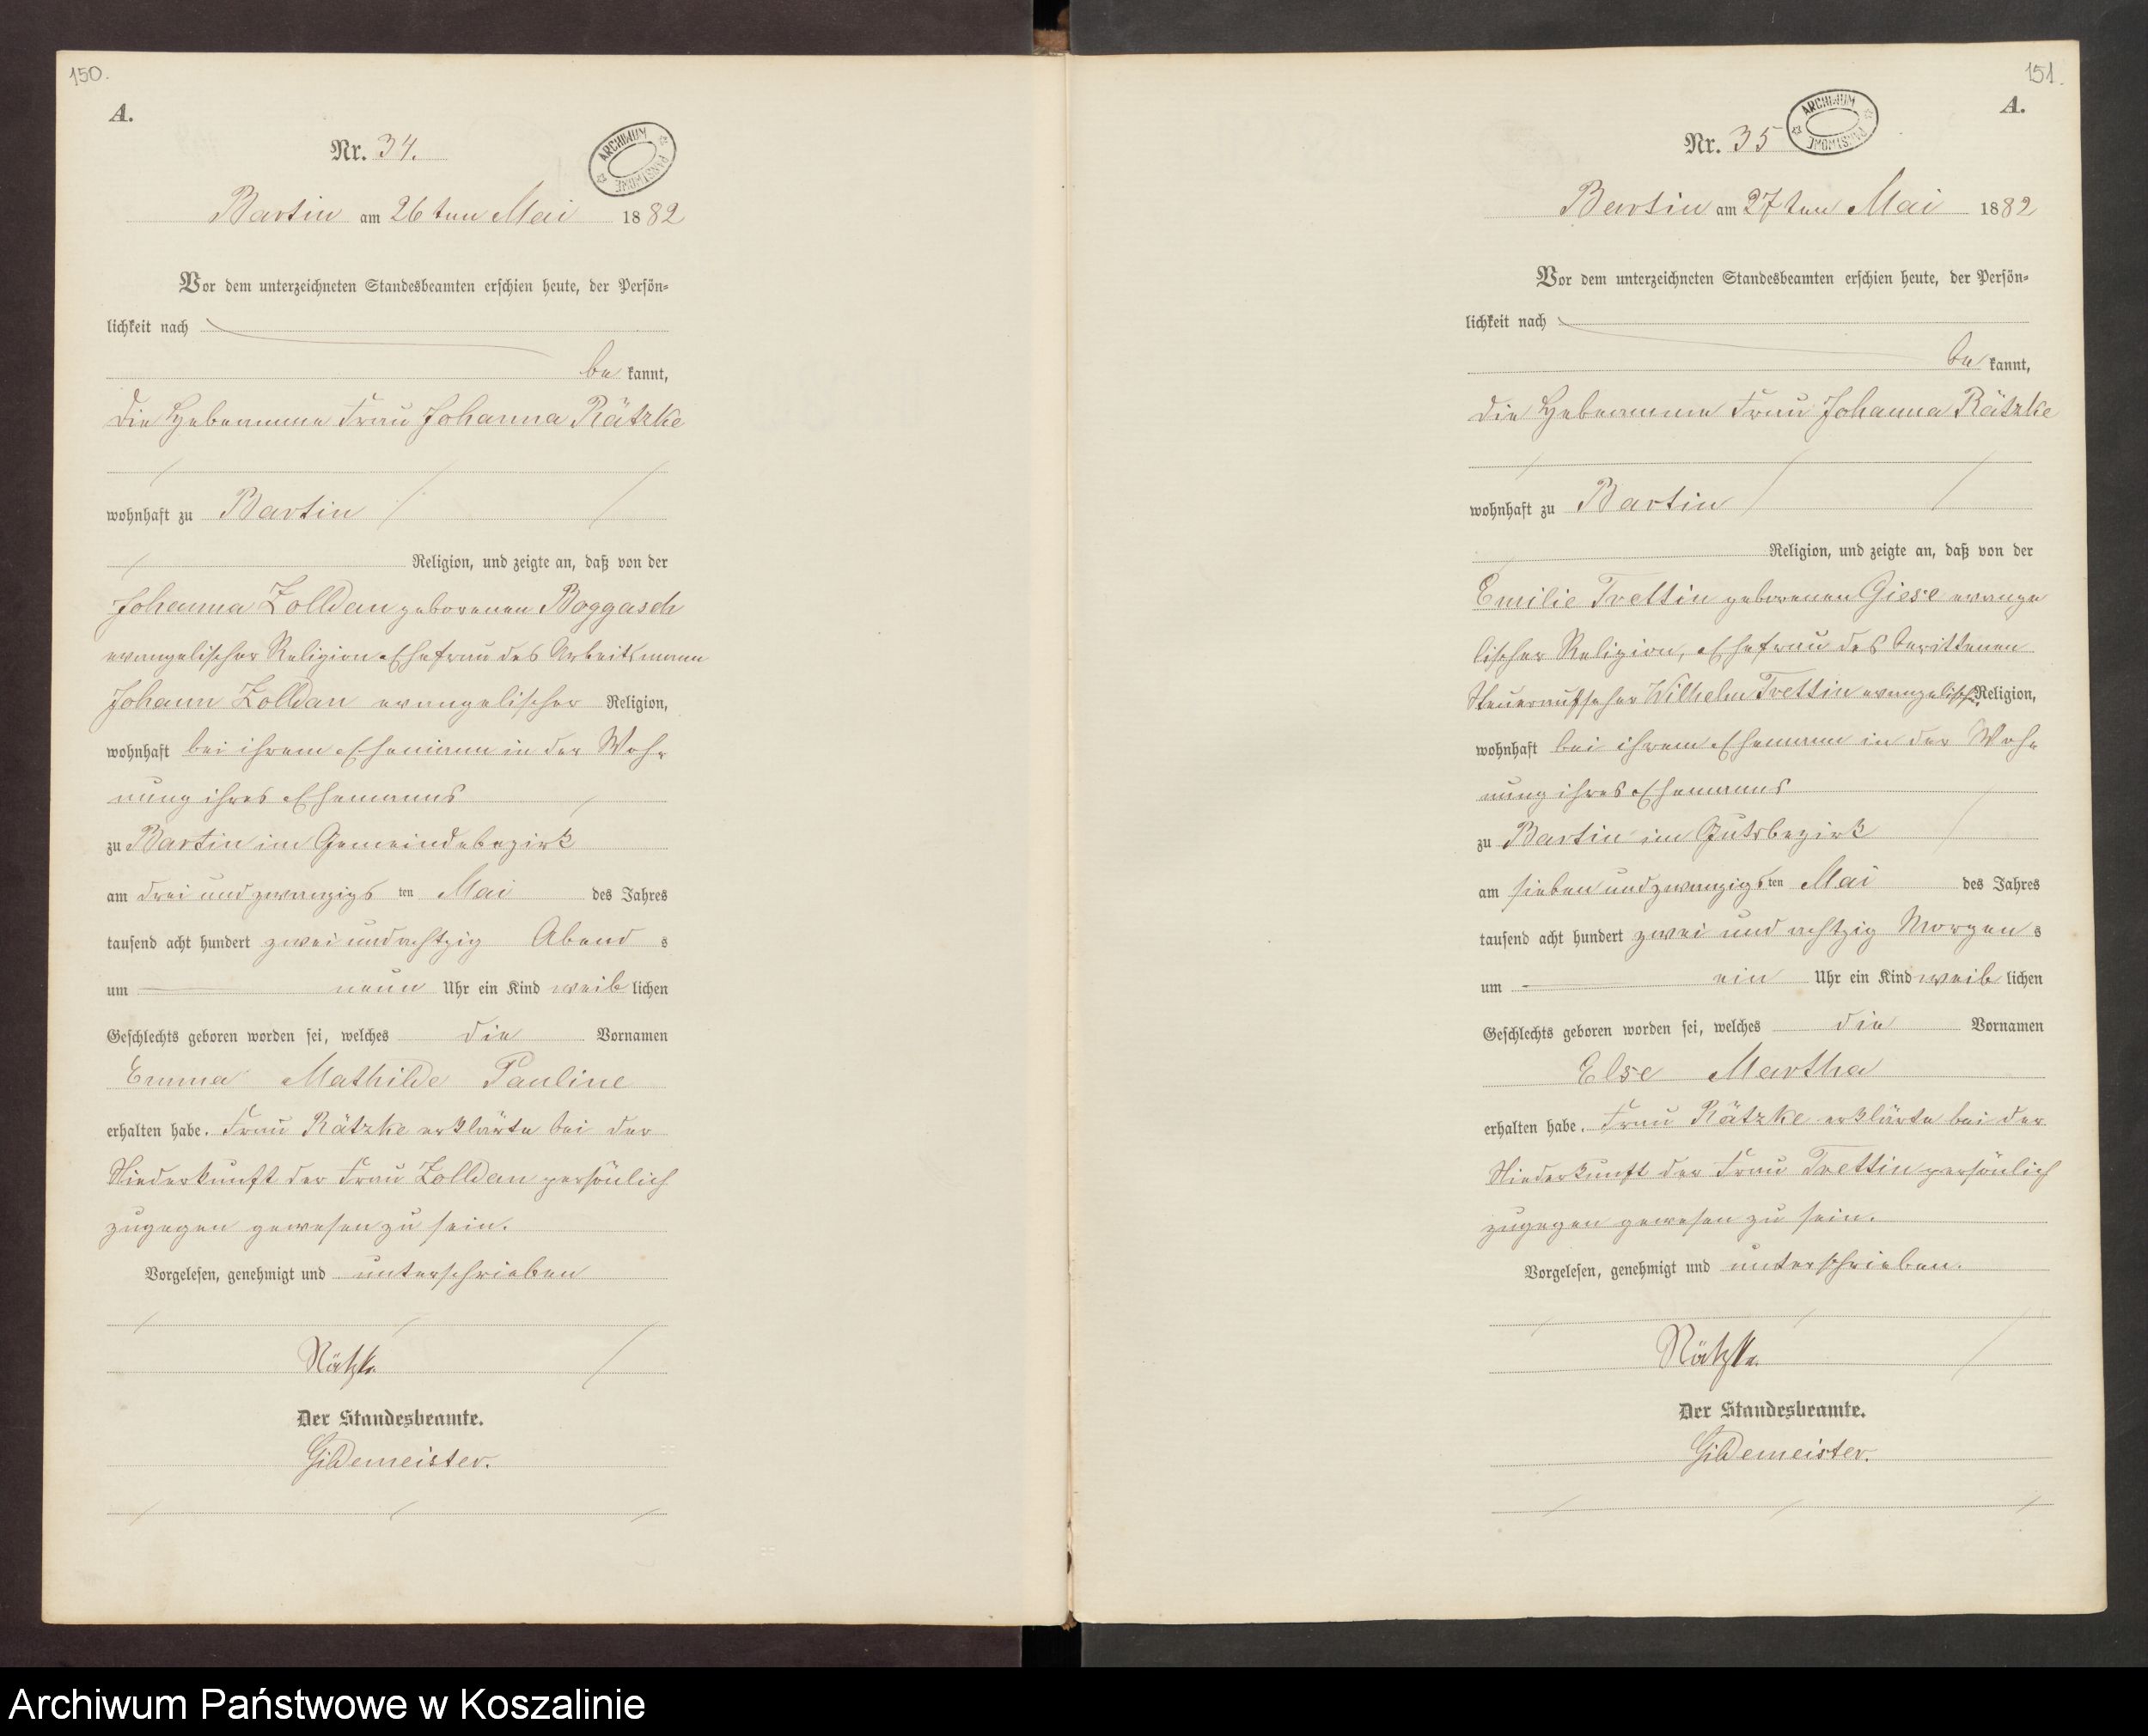 150.
A.
Nr. 34.
ARCHIWUM PAŃSTWOWE
Bartin am 26ten Mai 1882
Vor dem unterzeichneten Standesbeamten erschien heute, der Persön-
lichkeit nach
be kannt,
die Hebeamme Frau Johanna Rätzke
wohnhaft zu Bartin
Religion, und zeigte an, daß von der
Johanna Zolldan geborenen Boggasch
evangelischer Religion Ehefrau des Arbeitsmann
Johann Zolldan evangelischer Religion,
wohnhaft bei ihrem Ehemann in der Woh-
nung ihres Ehemanns
zu Bartin im Gemeindebezirk
am drei und zwanzigs ten Mai des Jahres
tausend acht hundert zwei und achtzig Abend s
um neun Uhr ein Kind weib lichen
Geschlechts geboren worden sei, welches die Vornamen
Emma Mathilde Pauline
erhalten habe. Frau Rätzke erklärte bei der
Niederkunft der Frau Zolldan persönlich
zugegen gewesen zu sein.
Vorgelesen, genehmigt und unterschrieben
Rätzke
Der Standesbeamte.
Gildemeister.
151.
A.
Nr. 35
ARCHIWUM PAŃSTWOWE
Bartin am 27ten Mai 1882
Vor dem unterzeichneten Standesbeamten erschien heute, der Persön-
lichkeit nach
be kannt,
die Hebeamme Frau Johanna Rätzke
wohnhaft zu Bartin
Religion, und zeigte an, daß von der
Emilie Trettin geborenen Giese evange
lischer Religion, Ehefrau des berittenen
Steueraufseher Wilhelm Trettin evangelisch. Religion,
wohnhaft bei ihrem Ehemann in der Woh-
nung ihres Ehemanns
zu Bartin im Gutsbezirk
am sieben und zwanzigs ten Mai des Jahres
tausend acht hundert zwei und achtzig Morgen s
um ein Uhr ein Kind weib lichen
Geschlechts geboren worden sei, welches die Vornamen
Else Martha
erhalten habe. Frau Rätzke erklärte bei der
Niederkunft der Frau Trettin persönlich
zugegen gewesen zu sein.
Vorgelesen, genehmigt und unterschrieben.
Rätzke
Der Standesbeamte.
Gildemeister.
Archiwum Państwowe w Koszalinie